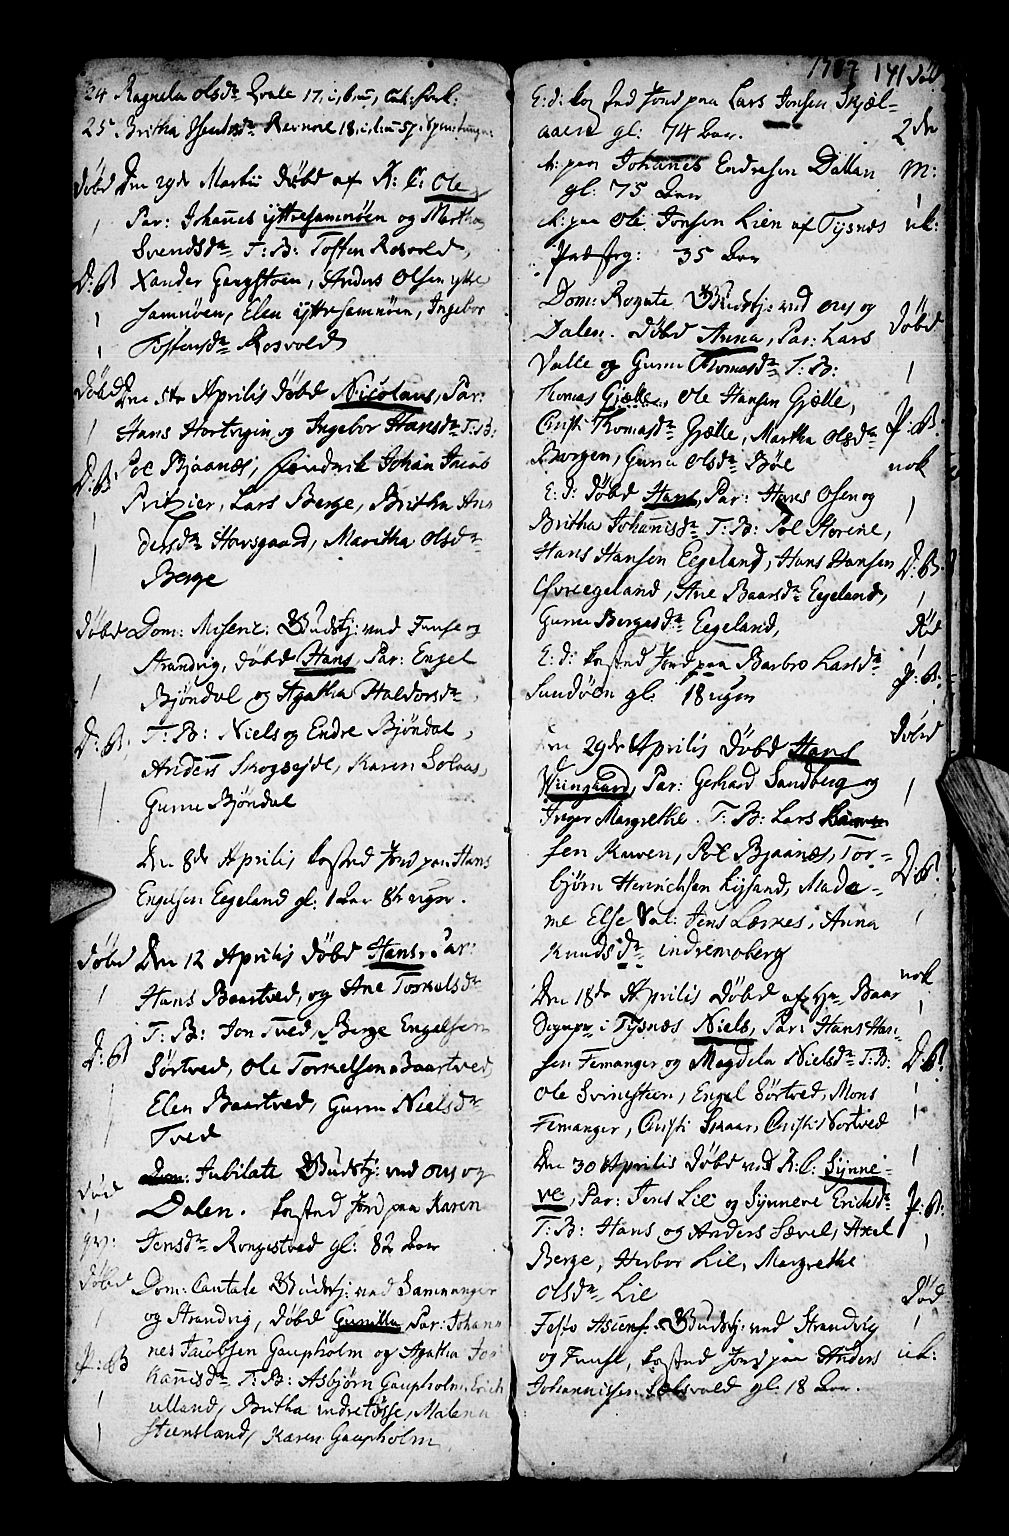 24 Ragnela Olsdr Qvale 17.
25 Britha
døbd Den 29de Martii døbd af R: C: Ole
Par: Johañes Yttresamnøen og Martha
Svendsdr T: B: Tosten Rosvold,
D: B Xander Gangstøen, Anders Olsen ytre
Samnøen, Elen Yttresamnøen, Ingebor
Tostensdr Rosvold
døbd Den 5te Aprilis døbd Nicolaus, Par:
Hans Hartvigin og Ingebor Hansdr T: B:
D: B: Pol Bjaanæs, Hendrik Johan Jacob
Pritzier, Lars Berge, Britha An
dersdr Havsgaard, Maritha Olsdr
Berge
døbd Dom: Miseric: Gudstj: ved Fuuse og
Strandvig, døbd Hans, Par: Engel
Bjöndal og Agatha Haldorsdr
D: B. T: B: Niels og Endre Bjöndal,
Anders Skogseide, Karen Solaas,
Gurue Bjöndal
Den 8de Aprilis kasted Jord paa Hans
Engelsen Eegeland gl: 1 Aar 8te uger.
døbd Den 12 Aprilis døbd Hans, Par:
Hans Baartved, og Ane Torkelsdr
D: B T: B: Jon Tved, Berge Engelsen
Sörtved, Ole Torkelsen Baartved,
Elen Baartved, Guru Nielsdr
Tved
død Dom: Jubilate Gudstj: ved Ous og
Dalen. kasted Jord paa Karen
Jensdr Rongestved gl: 82 Aar
døbd Dom: Cantate Gudstj: ved Samnanger
og Strandvig, døbd Gunilla, Par: Johann
nes Jacobsen Gaupholm og Agatha Jo
P: B hañisdr T: B: Asbjørn Gaupholm, Erich
ulland, Britha indretøsse, Malena
Steensland, Karen Gaupholm
1789 141
E: d: kasted Jord paa Lars Jonsen Skjæl-
aaen gl: 74 Aar. 2de
it: paa Johañes Endresen Dallan M:
gl: 75 Aar
it: paa Ole Jonsen Lien af Tysnæs
Præsteg: 35 Aar
Dom: Rogate Gudstj: ved Ous og
Dalen. døbd Anna, Par: Lars døbd
Valle og Guru Thomasdr T: B:
Thomas Gjelle, Ole Hansen Gjelle,
Christi Thomasdr Gjelle, Martha Olsdr P: B:
Borgen, Guru Olsdr Böe nok
E: d: døbd Hans, Par: Hans Olsen og
Britha Johañisdr T: B: Pol Storene,
Hans Hansen Eegeland, Hans Hansen D: B.
Øvreegeland, Ane Baarsdr Eegeland,
Guru Bergesdr Eegeland, død
E: d: kasted Jord paa Barbro Larsdr P: B:
Sundöen gl: 18 uger
Den 29de Aprilis døbd Hans døbd
Wiingaard, Par: Gerhard Sandberg og
Inger Margrethe. T: B: Lars
sen Kuven, Pol Bjaanæs, Tor- D: B.
bjørn Henrichsen Lysand, Mada-
me Else Sal: Jens Lærkes, Anna
Knudsdr indremoberg nok
Den 18de Aprilis døbd af Hr Baar
i Tysnæs Niels, Par: Hans Han-
sen Femanger og Magdela Nielsdr T: B: D: B:
Ole Svinestien, Engel Sörtved, Mons
Femanger, Christi Skaar, Christi Nortved
Den 30 Aprilis døbd ved R: C: Synne-
ve, Par: Jens Lie og Synneve Erichsdr P: B:
T: B: Hans og Anders Sævel, Axel
Berge, Herbor Lie, Margrethe
Olsdr Lie død
Festo Ascens: Gudstj: ved Strandvig
og Fuuse, kasted Jord paa Anders
Johannissen Sælsvold gl: 18 Aar.